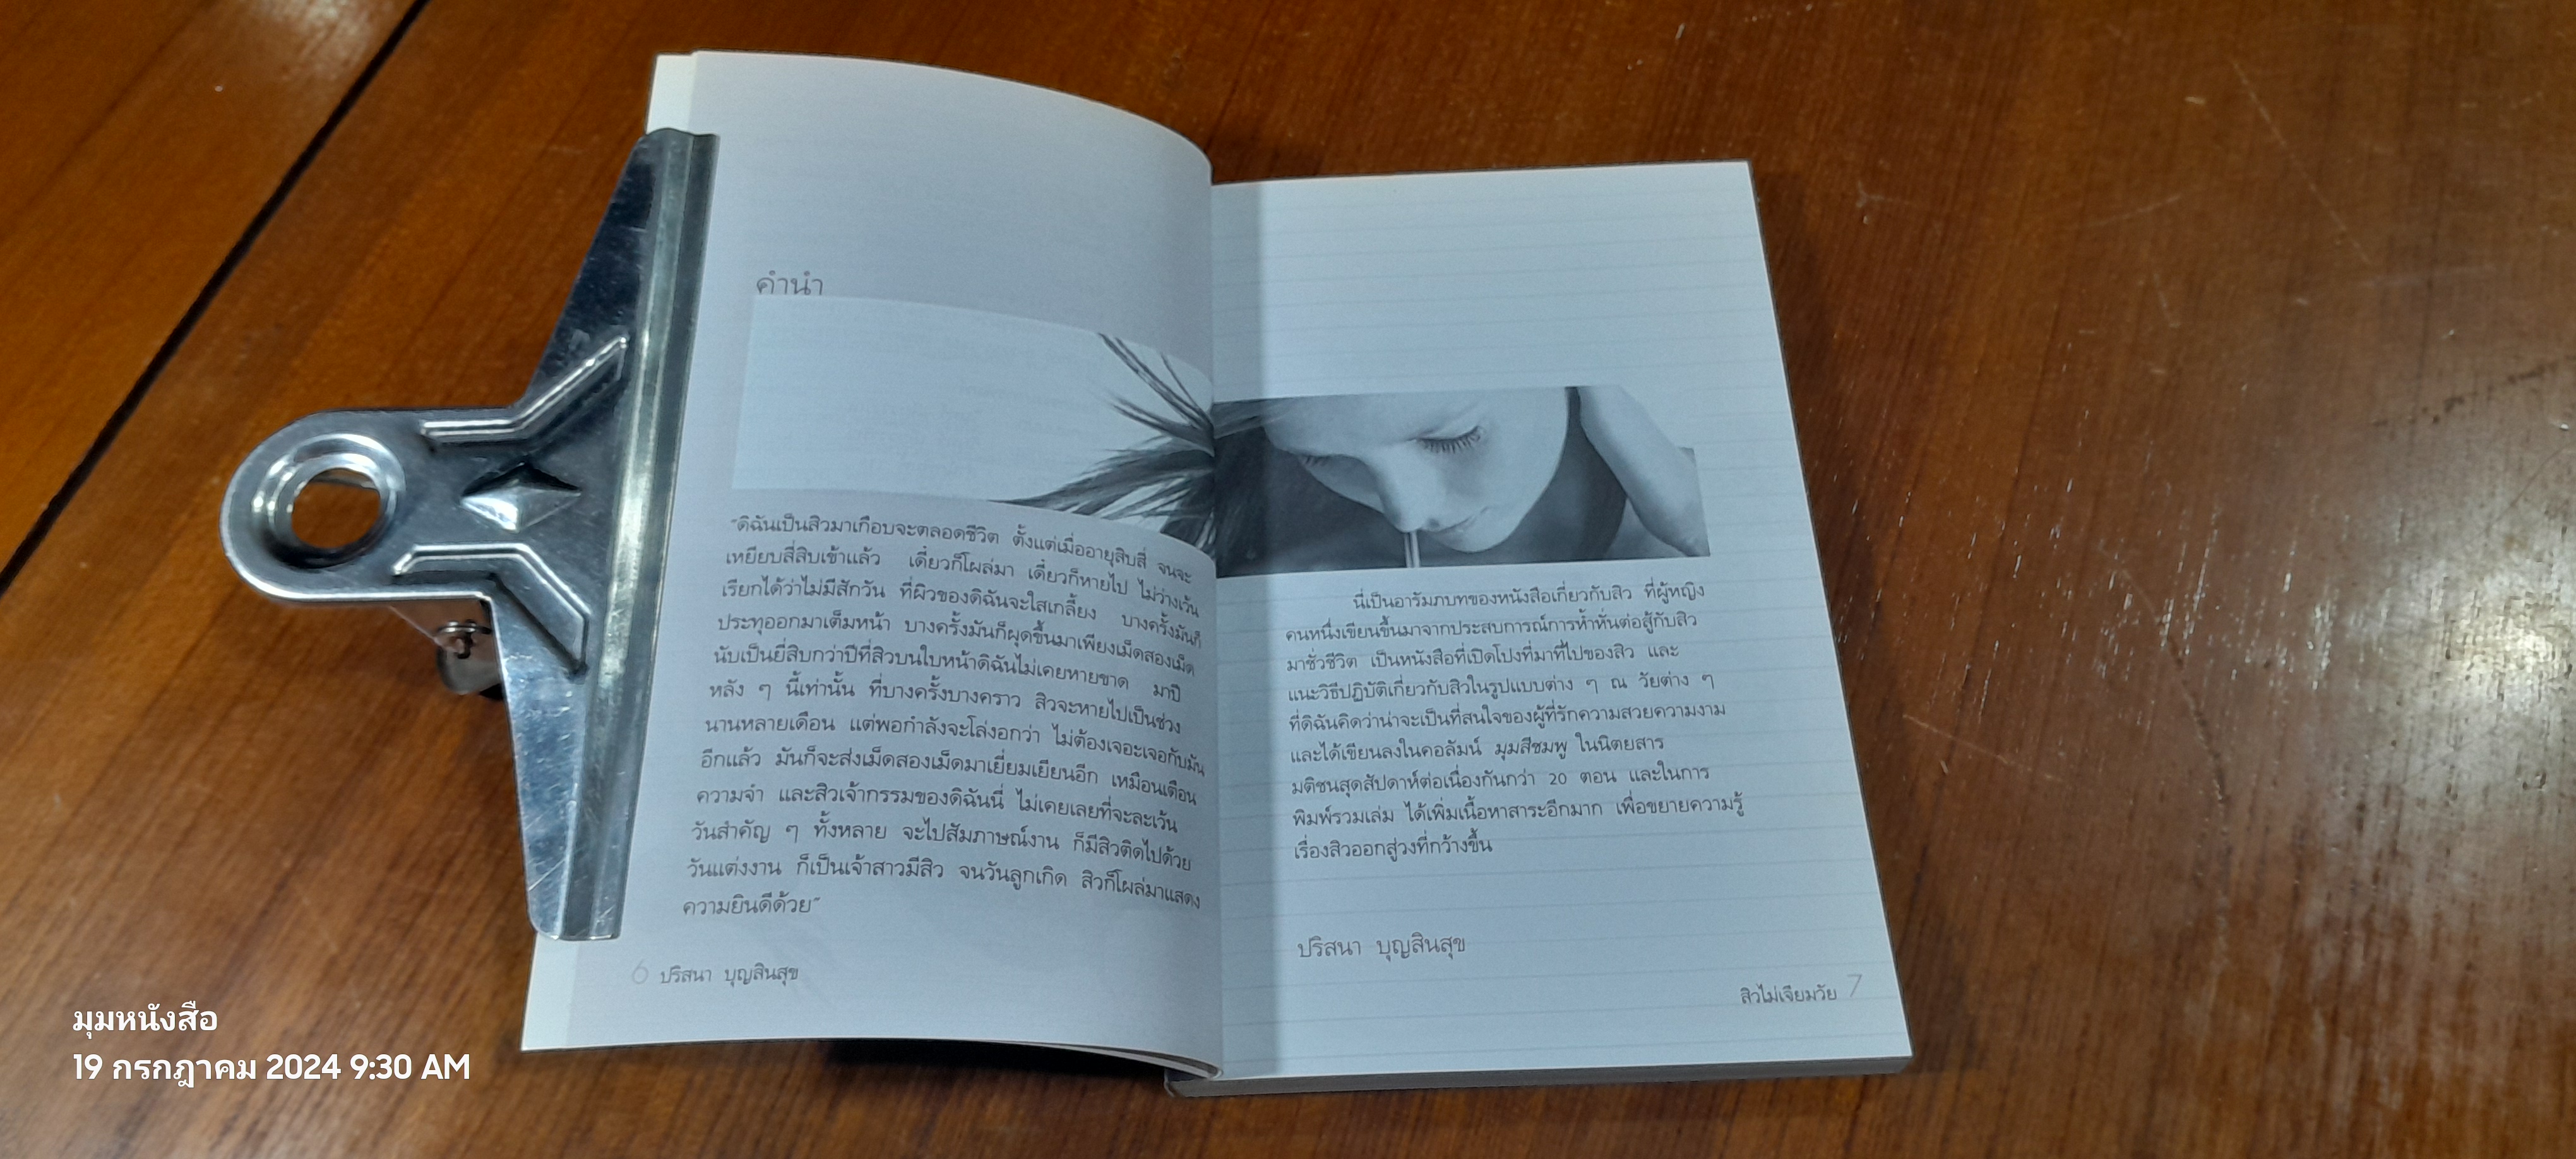 คำนำ
"ดิฉันเป็นสิวมาเกือบจะตลอดชีวิต ตั้งแต่เมื่ออายุสิบสี่ จนจะ
เหยียบสี่สิบเข้าแล้ว เดี๋ยวก็โผล่มา เดี๋ยวก็หายไป ไม่ว่างเว้น
เรียกได้ว่าไม่มีสักวัน ที่ผิวของดิฉันจะใสเกลี้ยง บางครั้งมันก็
ประทุออกมาเต็มหน้า บางครั้งมันก็ผุดขึ้นมาเพียงเม็ดสองเม็ด
นับเป็นยี่สิบกว่าปีที่สิวบนใบหน้าดิฉันไม่เคยหายขาด มาปี
หลัง ๆ นี้เท่านั้น ที่บางครั้งบางคราว สิวจะหายไปเป็นช่วง
นานหลายเดือน แต่พอกำลังจะโล่งอกว่า ไม่ต้องเจอะเจอกับมัน
อีกแล้ว มันก็จะส่งเม็ดสองเม็ดมาเยี่ยมเยียนอีก เหมือนเตือน
ความจำ และสิวเจ้ากรรมของดิฉันนี่ ไม่เคยเลยที่จะละเว้น
วันสำคัญ ๆ ทั้งหลาย จะไปสัมภาษณ์งาน ก็มีสิวติดไปด้วย
วันแต่งงาน ก็เป็นเจ้าสาวมีสิว จนวันลูกเกิด สิวก็โผล่มาแสดง
ความยินดีด้วย"
6 ปริสนา บุญสินสุข
นี่เป็นอารัมภบทของหนังสือเกี่ยวกับสิว ที่ผู้หญิง
คนหนึ่งเขียนขึ้นมาจากประสบการณ์การห้ำหั่นต่อสู้กับสิว
มาชั่วชีวิต เป็นหนังสือที่เปิดโปงที่มาที่ไปของสิว และ
แนะวิธีปฏิบัติเกี่ยวกับสิวในรูปแบบต่าง ๆ ณ วัยต่าง ๆ
ที่ดิฉันคิดว่าน่าจะเป็นที่สนใจของผู้ที่รักความสวยความงาม
และได้เขียนลงในคอลัมน์ มุมสีชมพู ในนิตยสาร
มติชนสุดสัปดาห์ต่อเนื่องกันกว่า 20 ตอน และในการ
พิมพ์รวมเล่ม ได้เพิ่มเนื้อหาสาระอีกมาก เพื่อขยายความรู้
เรื่องสิวออกสู่วงที่กว้างขึ้น
ปริสนา บุญสินสุข
สิวไม่เจียมวัย 7
มุมหนังสือ
19 กรกฎาคม 2024 9:30 AM